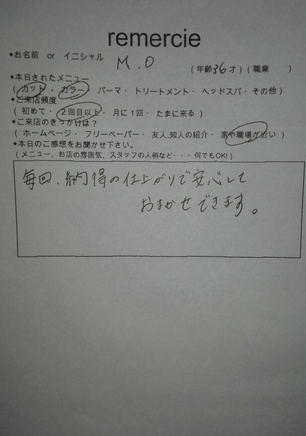 remercie
*お名前 or イニシャル
M.O (年齢36才)(職業 )
*本日されたメニュー
(カット・カラー・パーマ・トリートメント・ヘッドスパ・その他)
*ご来店頻度
(初めて・2回目以上・月に1回・たまに来る)
*ご来店のきっかけは?
(ホームページ・フリーペーパー・友人,知人の紹介・家や職場が近い)
*本日のご感想をお聞かせ下さい。
(メニュー、お店の雰囲気、スタッフの人柄など・・・何でもOK!)
毎回、納得の仕上がりで安心して
おまかせできます。